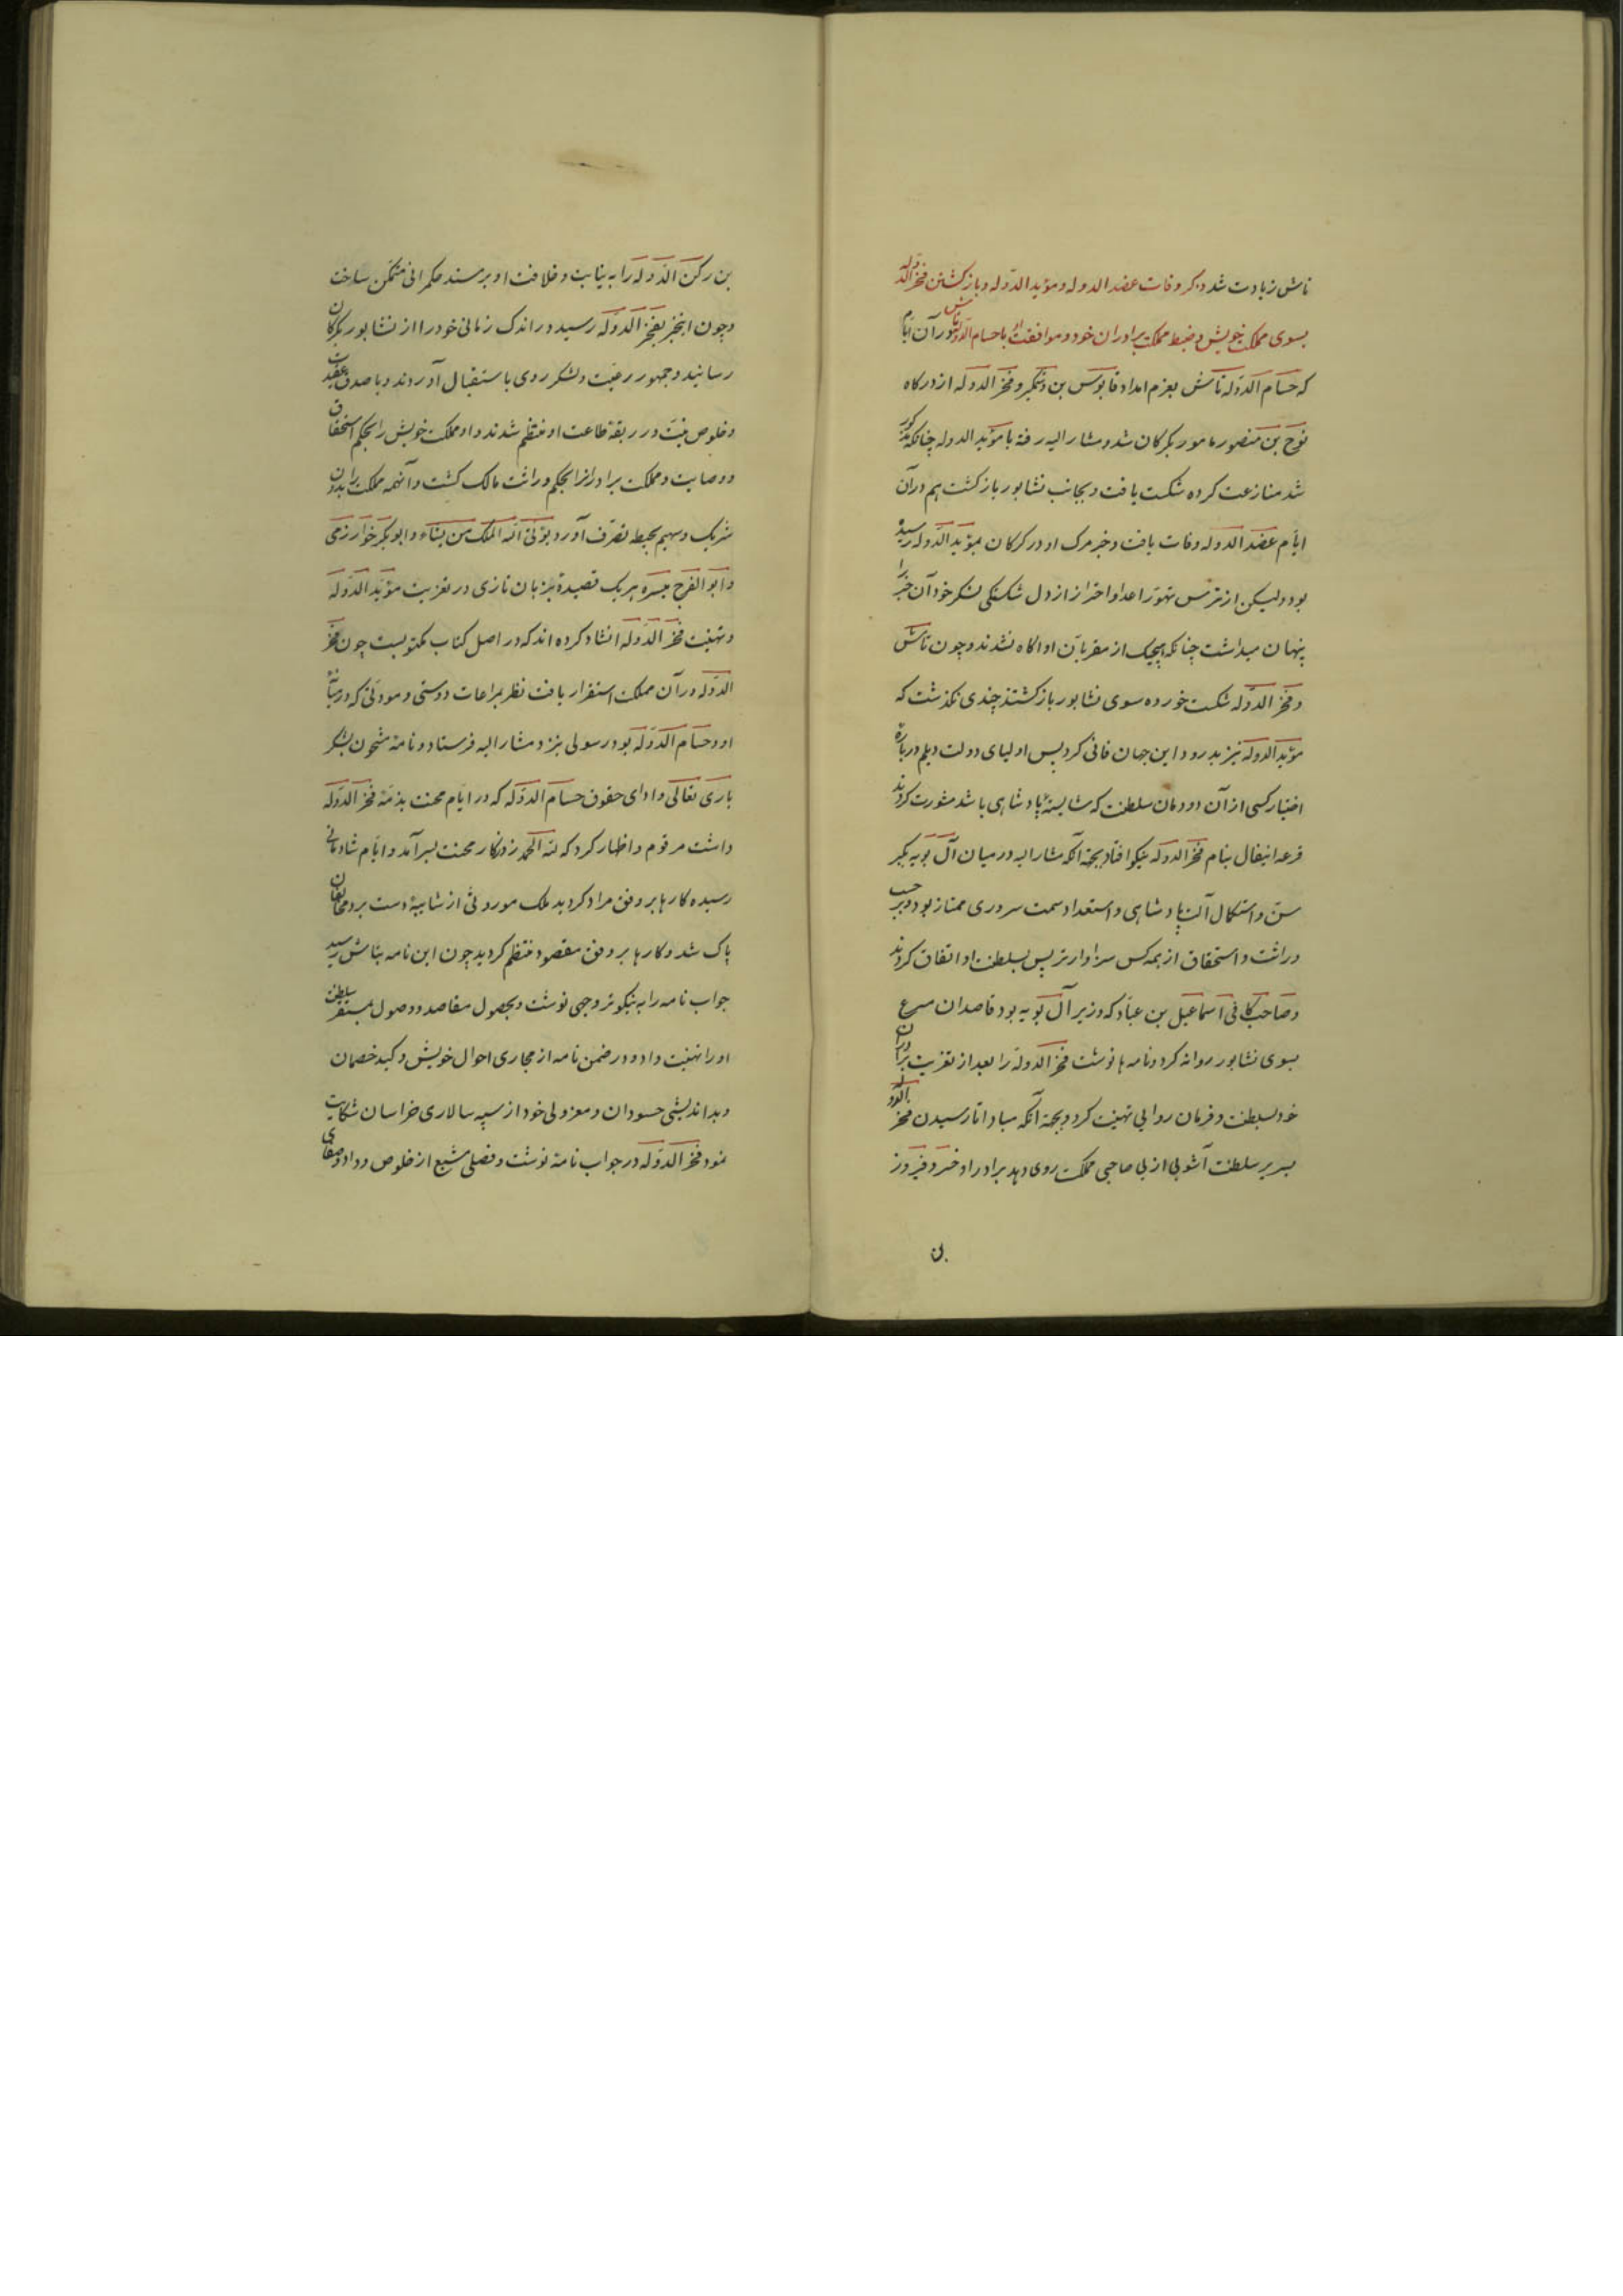 تاش زیادت شد ذکر وفات عضد الدوله و مؤید الدّوله و بازگشتن فخر الدّوله
بسوی مملکت خویش و ضبط مملکت برادران خود و موافقت او با حسام الدّوله تاش در آن ایّام
که حسام الدّوله تاش بعزم امداد قابوس بن وشمکیر و فخر الدوله از درکاه
نوح بن منصور مامور بکرکان شد و مشار الیه رفته با مؤید الدوله چنانکه مذکور
شد منازعت کرده شکست یافت و بجانب نشابور بازکشت هم در آن
ایّام عضد الدوله وفات یافت و خبر مرک او در کرکان بمؤید الدّوله رسیده
بود ولیکن از ترس تهوّر اعدا و احتراز از دل شکستکی لشکر خود آن خبر را
پنهان میداشت چنانکه هیچیک از مقربان او اکاه نشدند و چون تاش
و فخر الدّوله شکست خورده سوی نشابور بازکشتند چندی نکذشت که
مؤید الدوله نیز بدرود این جهان فانی کرد پس اولیای دولت دیلم درباره
اختیار کسی از آن دودمان سلطنت که شایستهٔ پادشاهی باشد مشورت کردند
قرعه اتیفال بنام فخر الدوله نیکو افتاد بجهة آنکه مشار الیه در میان آل بویه بکبر
سنّ و استکمال آلت پادشاهی و استعداد سمت سروری ممتاز بود و بر حسب
وراثت و استحقاق از همه کس سزاوارتر پس بسلطنت او اتفاق کردند
و صاحب کافی اسماعیل بن عبّاد که وزیر آل بویه بود قاصدان مسرع
بسوی نشابور روانه کرد و نامه ها نوشت فخر الدوله را بعد از تعزیت برادران
خود بسلطنت و فرمان روایی تهنیت کرد و بجهة آنکه مبادا تا رسیدن فخر الدوله
بسریر سلطنت آشوبی از بی صاحبی مملکت روی دهد برادر او خسرو فیروز
بن
بن رکن الدّوله را به نیابت و خلافت او بر مسند حکمرانی متمکّن ساخت
و چون اینخبر بفخر الدّوله رسید در اندک زمانی خود را از نشابور بکرکان
رسانید و جمهور رعیّت و لشکر روی باستقبال آوردند و با صدق عقیدت
و خلوص نیّت در ربقهٔ طاعت او منتظم شدند و او مملکت خویش را بحکم استحقاق
و وصایت و مملکت برادرانرا بحکم وراثت مالک کشت و آنهمه مملکت را بدون
شریک و سهیم بحیطه تصرّف آورد یؤتی الله الملک من یشاء و ابو بکر خوارزمی
و ابو الفرج میسره هریک قصیدهٔ بزبان تازی در تعزیت مؤید الدّوله
و تهنیت فخر الدّوله انشاد کرده اند که در اصل کتاب مکتوبست چون فخر
الدّوله در آن مملکت استقرار یافت نظر بمراعات دوستی و مودّتی که در میانه
او و حسام الدّوله بود رسولی بنزد مشار الیه فرستاد و نامهٔ مشحون بشکر
باری تعالی و ادای حقوق حسام الدوّله که در ایّام محنت بذمّهٔ فخر الدّوله
داشت مرقوم و اظهار کرد که لله الحمد روزکار محنت بسر آمد و ایّام شادمانی
رسیده کارها بر وفق مراد کردید ملک موروثی از شایبهٔ دست برد مخالفان
پاک شد و کارها بر وفق مقصود منتظم کردید چون این نامه بتاش رسید
جواب نامه را به نیکوتر وجهی نوشت و بحصول مقاصد و وصول بمستقر سلطنت
او را تهنیت داد و در ضمن نامه از مجاری احوال خویش و کید خصمان
و بداندیشی حسودان و معزولی خود از سپه سالاری خراسان شکایت
نمود فخر الدّوله در جواب نامهٔ نوشت و فصلی مشبع از خلوص وداد و صفای